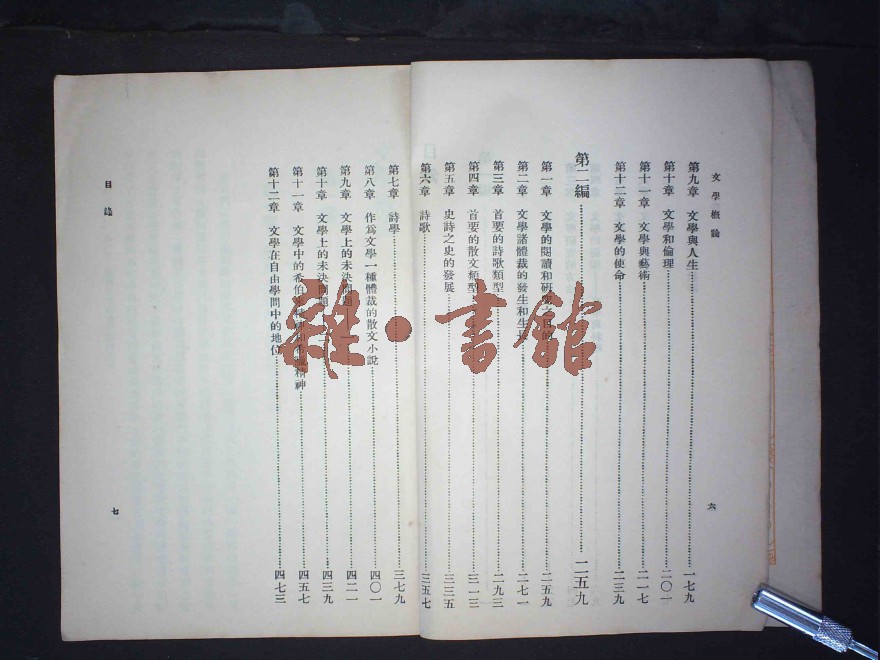 文學概論
第九章 文學與人生 一七九
第十章 文學和倫理 二〇一
第十一章 文學與藝術 二一七
第十二章 文學的使命 二三九
第二編 二五九
第一章 文學的閱讀和研究之目的 二五九
第二章 文學諸體裁的發生和生長 二七一
第三章 首要的詩歌類型 二九三
第四章 首要的散文類型 三一三
第五章 史詩之史的發展 三三五
第六章 詩歌 三五七
六
第七章 詩學 三七九
第八章 作爲文學一種體裁的散文小說 四〇一
第九章 文學上的未決問題 四二一
第十章 文學上的未決問題 四三九
第十一章 文學中的希伯 精神 四五七
第十二章 文學在自由學問中的地位 四七三
目錄
七
雜·書館